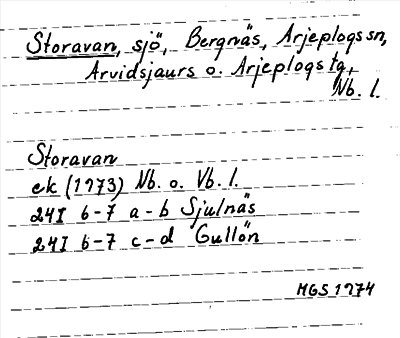 Storavan, sjö, Bergnäs, Arjeplogs sn,
Arvidsjaurs o. Arjeplogs tg,
Nb. l.
Storavan
ek (1973) Nb. o. Vb. l.
24I 6-7 a-b Sjulnäs
24I 6-7 c-d Gullön
MGS 1974